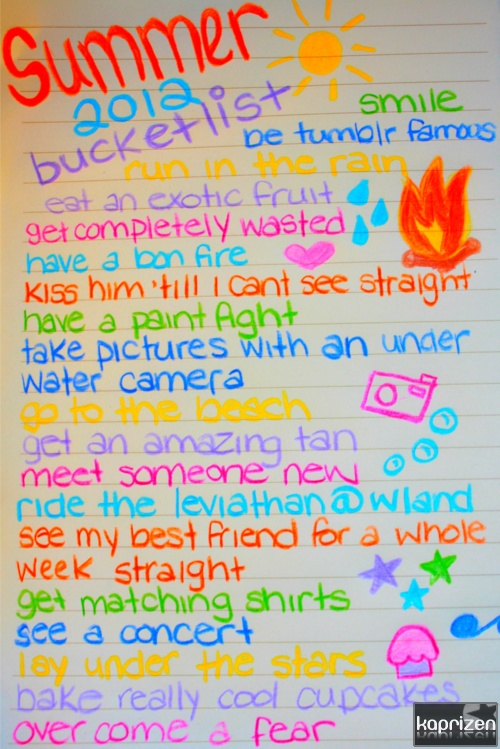 Summer
2012
bucketlist
smile
be tumblr famous
run in the rain
eat an exotic fruit
get completely wasted
have a bon fire
kiss him 'till I cant see straight
have a paint fight
take pictures with an under
water camera
go to the beach
get an amazing tan
meet someone new
ride the leviathan@wland
see my best friend for a whole
week straight
get matching shirts
see a concert
lay under the stars
bake really cool cupcakes
over come a fear
kaprizen